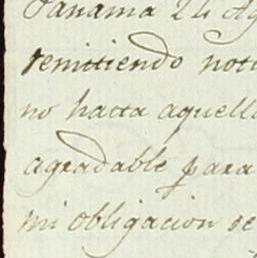 Panama 24 Ag
remitiendo noti
no hasta aquello
agradable para
mi obligacion se